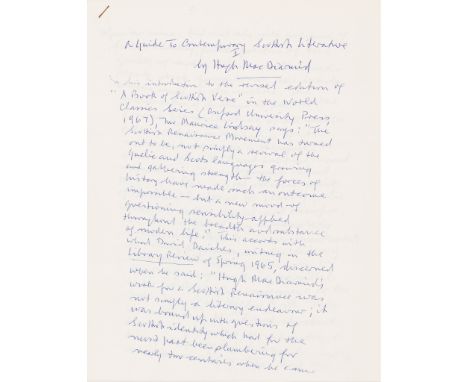 A Guide To Contemporary Scottish Literature
I
by Hugh MacDiarmid
In his introduction to the revised edition of
"A Book of Scottish Verse" in the World
Classics Series (Oxford University Press,
1967), Mr Maurice Lindsay says: "The
Scottish Renaissance Movement has turned
out to be, not simply a revival of the
Gaelic and Scots languages growing
and gathering strength – the forces of
history have made such an outcome
impossible – but a new mood of
questioning sensibility applied
throughout the breadth and substance
of modern life." This accords with
what David Daiches, writing in the
Library Review of Spring 1965, discerned
when he said: "Hugh MacDiarmid's
work for a Scottish Renaissance was
not simply a literary endeavour; it
was bound up with questions of
Scottish identity which had for the
most part been slumbering for
nearly two centuries when he came